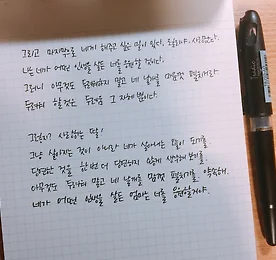 그리고 마지막으로 네게 해주고 싶은 말이 있다.
나는 네가 어떤 인생을 살든 너를 응원할 것이다.
그러니 아무것도 두려워하지 말고 네 날개를 마음껏 펼치거라.
두려워할 것은 두려움 그 자체뿐이다.
그렇지? 사랑하는 딸!
그냥 살아지는 것이 아니라 네가 살아내는 오늘이 되기를.
당연한 것을 한번 더 당연하지 않게 생각해 보기를.
아무것도 두려워 말고 네 날개를 맘껏 펼치기를. 약속해.
네가 어떤 인생을 살든 엄마는 너를 응원할거야.